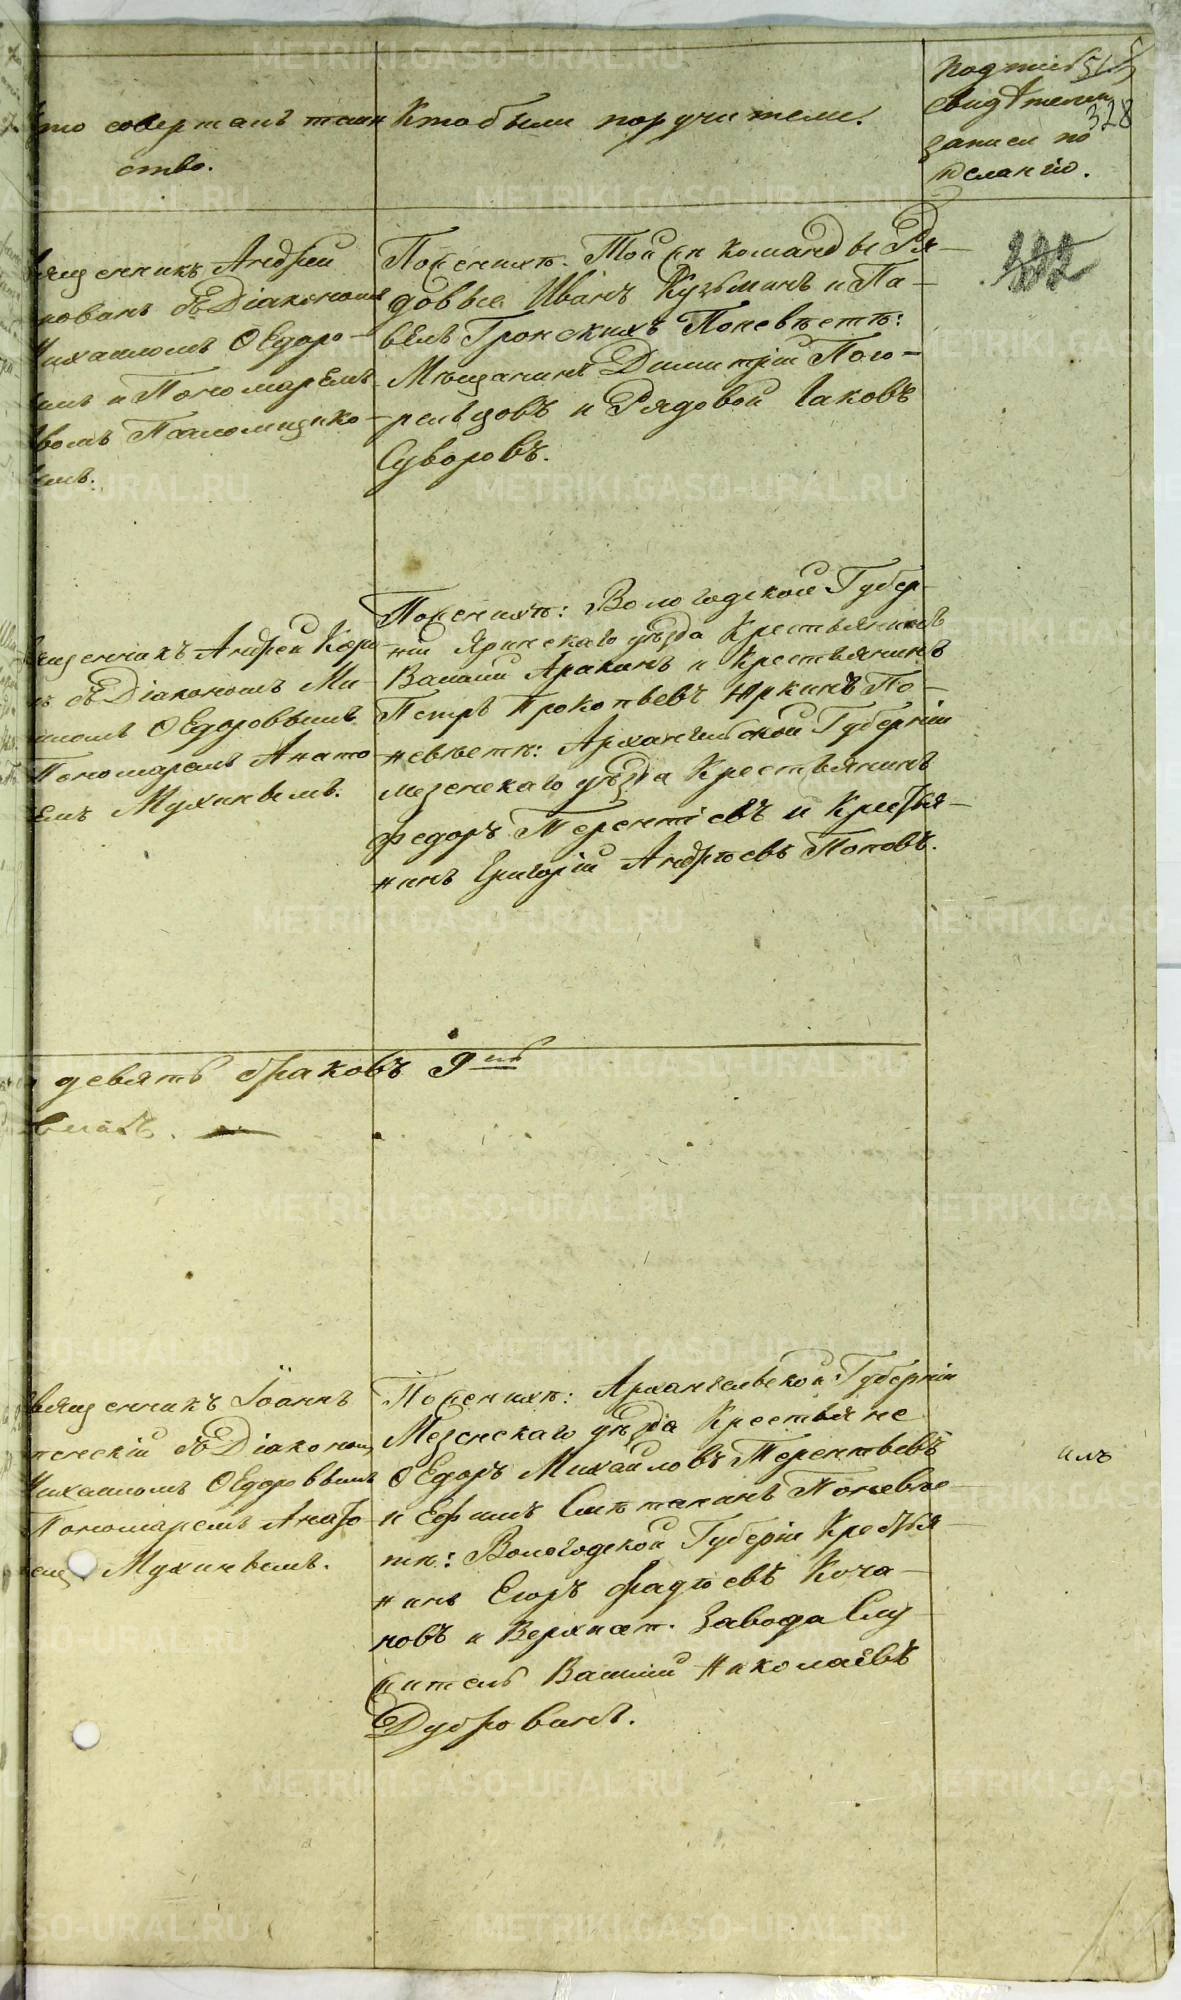 Кто совершалъ таин
ство.
Кто были поручители.
Подписъ
свидѣтелей
записи по
желанію.
328
вященникъ Андрей
новинъ съ Діакономъ
Михаиломъ Ѳедоро-
ымъ и Пономаремъ
Паломщико-
ымъ.
Поженихѣ. Той жи команды Ря-
довые Иванъ Кузьминъ и Па-
велъ Гронскихъ Поневѣстѣ:
Мѣщанинъ Димитрій Пого-
рельцовъ и Рядовой Іаковъ
Суворовъ.
322
ященникъ Андрей Кори
ъ съ Діакономъ Ми-
аиломъ Ѳедоровымъ
Пономаремъ Анато
емъ Мухинымъ.
Поженихѣ: Вологодской Губер-
ніи Яринскаго уѣзда Крестьянинъ
Василій Аракинъ и Крестьянинъ
Петръ Прокопьевъ Юркинъ По-
невѣстѣ: Архангельской Губерніи
мезенскаго уѣзда Крестьянинъ
Федоръ Терентіевъ и Крестья-
нинъ Григорій Андреевъ Поповъ.
девять браковъ 9ть
вященникъ Іоаннъ
пенскій съ Діакономъ
Михаиломъ Ѳедоровымъ
Пономаремъ Анато
емъ Мухинымъ.
Поженихѣ: Архангельской Губерніи
Мезенскаго уѣзда Крестьяне
Ѳедоръ Михайловъ Терентьевъ
и Ефимъ Сметанинъ Поневѣс-
тѣ: Вологодской Губерніи Крестья-
нинъ Егоръ Фадѣевъ Коча-
новъ и Верхисет. Завода Слу
житель Василій Николаевъ
Дубровинъ.
илъ
METRIKI.GASO-URAL.RU